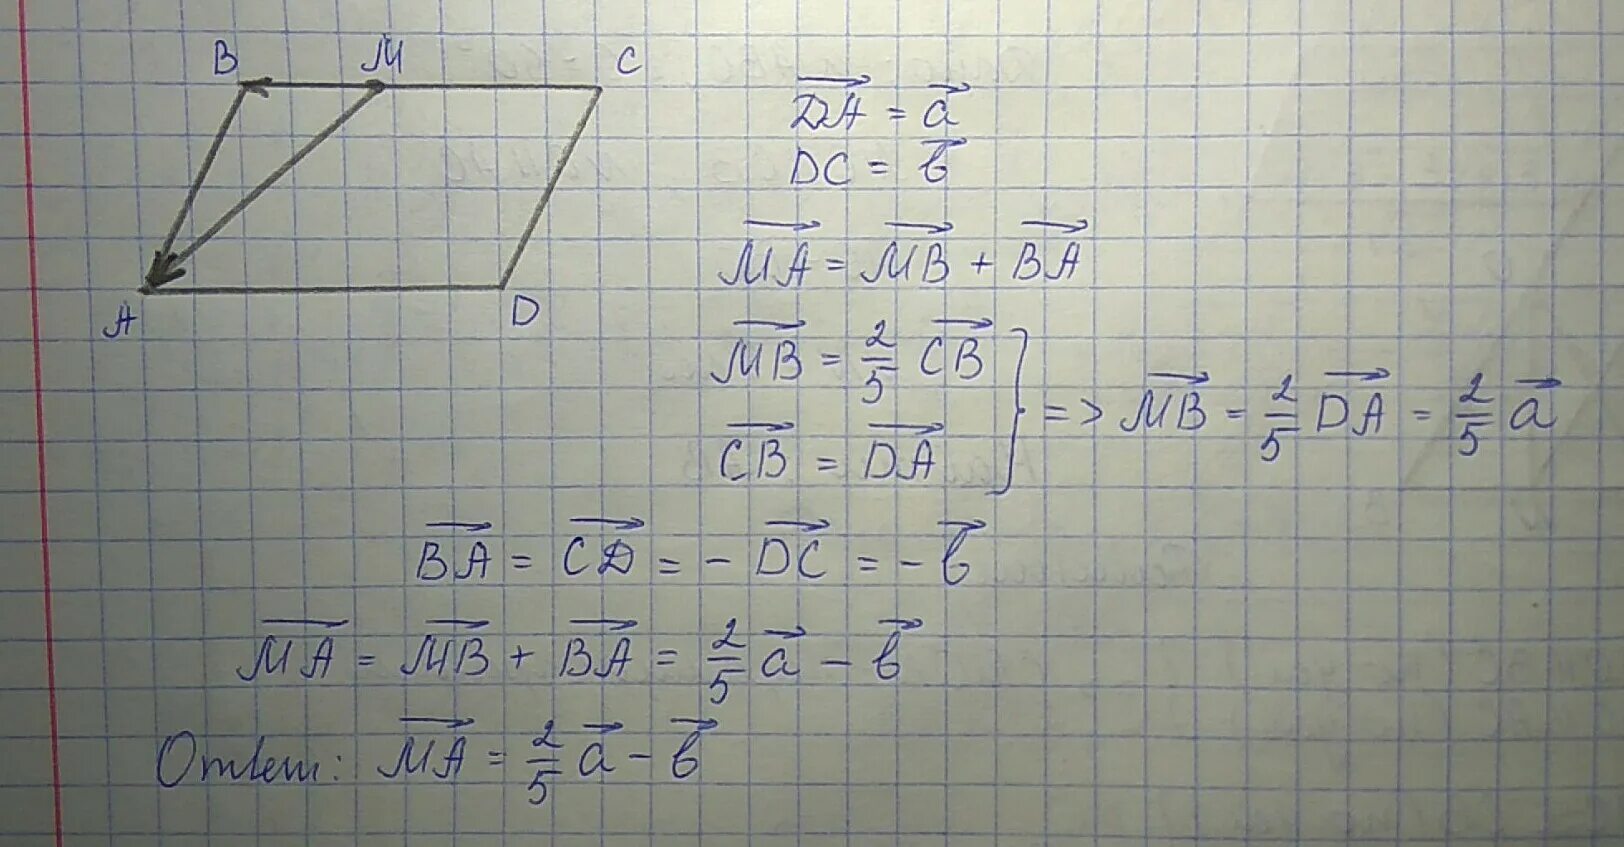 B M C
A D
DA⃗ = a⃗
DC = b⃗
MA⃗ = MB⃗ + BA⃗
MB⃗ = 2/5 CB⃗
CB⃗ = DA⃗
} => MB⃗ = 2/5 DA⃗ = 2/5 a⃗
BA⃗ = CD⃗ = - DC⃗ = - b⃗
MA⃗ = MB⃗ + BA⃗ = 2/5 a⃗ - b⃗
Ответ: MA⃗ = 2/5 a⃗ - b⃗